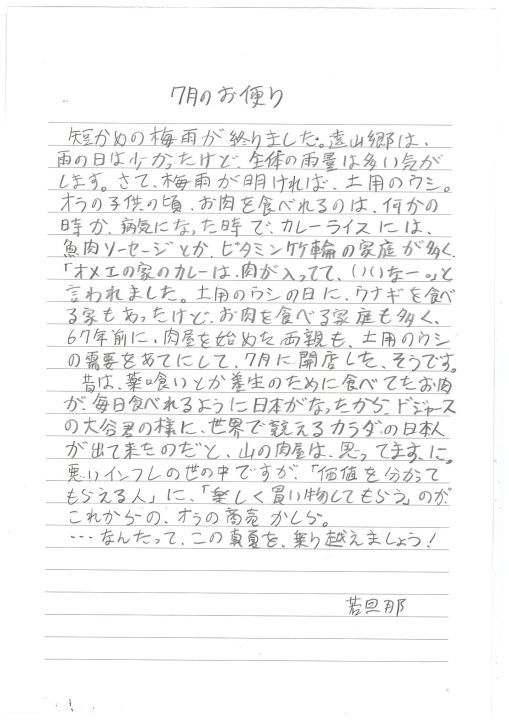 7月のお便り
短かめの梅雨が終りました。遠山郷は、
雨の日は少かったけど、全体の雨量は多い気が
します。さて、梅雨が明ければ、土用のウシ。
オラの子供の頃、お肉を食べれるのは、何かの
時か、病気になった時で、カレーライスには、
魚肉ソーセージとか、ビタミン竹輪の家庭が多く、
「オメエの家のカレーは、肉が入ってて、いいなー。」と
言われました。土用のウシの日に、ウナギを食べ
る家もあったけど、お肉を食べる家庭も多く、
67年前に、肉屋を始めた両親も、土用のウシ
の需要をあてにして、7月に開店した、そうです。
昔は、薬喰いとか養生のために食べてたお肉
が、毎日食べれるように日本がなったから、ドジャース
の大谷君の様に、世界で競えるカラダの日本人
が出て来たのだと、山の肉屋は、思ってますに。
悪いインフレの世の中ですが、「価値を分かって
もらえる人」に、「楽しく買い物してもらう」のが、
これからの、オラの商売かしら。
・・・なんたって、この真夏を、乗り越えましょう!
若旦那